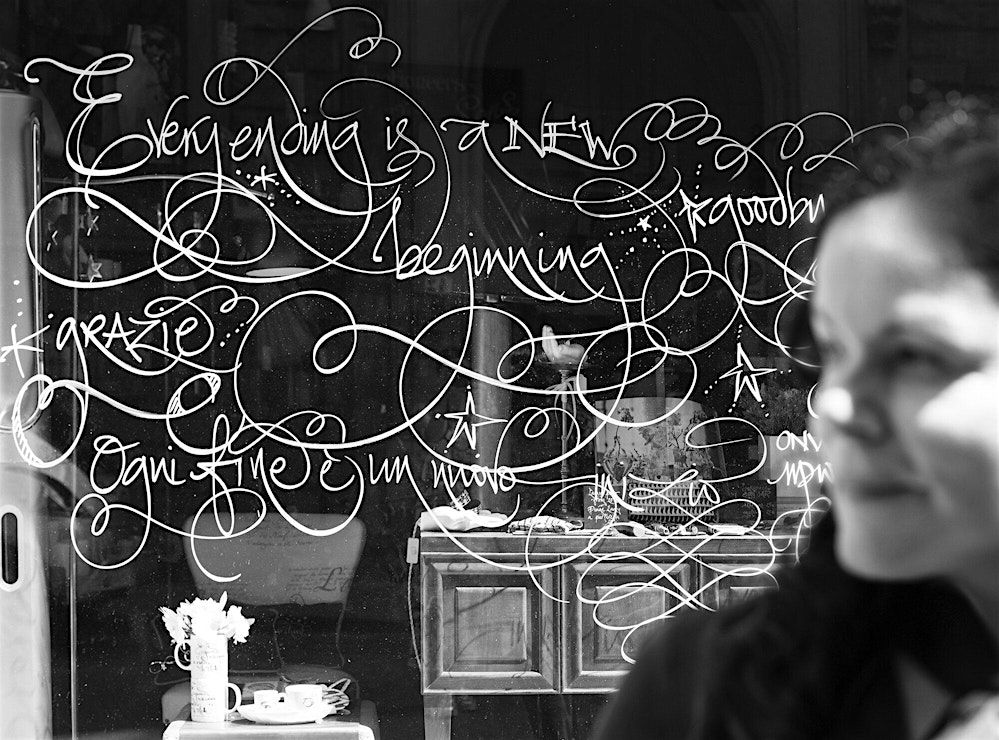 Every ending is a NEW
beginning
goodby
GRAZIE
Ogni fine è un nuovo
inizio